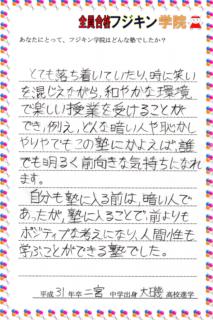 全員合格フジキン学院
あなたにとって、フジキン学院はどんな塾でしたか？
とても落ち着いていたり、時に笑い
を混じえながら、和やかな環境
で楽しい授業を受けることが
でき、例え、どんな暗い人や恥ずかし
がりやでもこの塾にかよえば、誰
でも明るく前向きな気持ちになれ
ます。
自分も塾に入る前は、暗い人で
あったが、塾に入ることで、前よりも
ポジティブな考えになり、人間性も
学ぶことができる塾でした。
平成 31 年卒 二宮 中学出身 大磯 高校進学